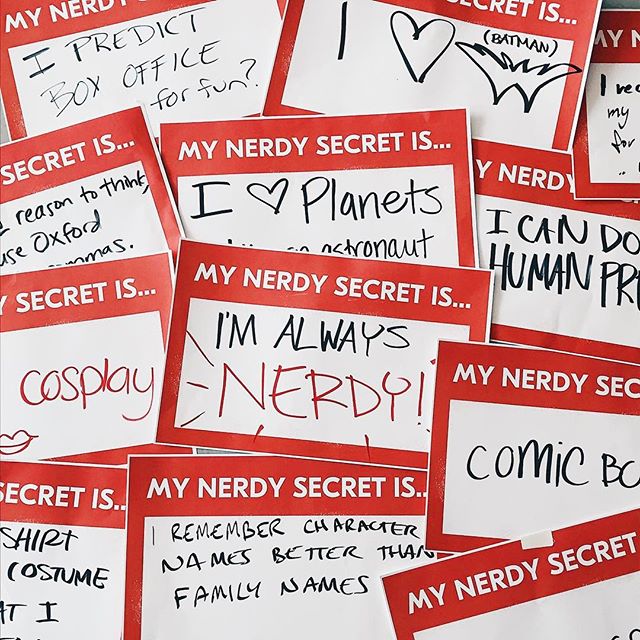 MY NERDY SECRET IS...
I PREDICT
BOX OFFICE
for fun?
IS...
I
(BATMAN)
MY N
my
for
SECRET IS...
reason to think
use Oxford
commas.
MY NERDY SECRET IS...
I ♡ Planets
astronaut
MY NERDY
I CAN DO
HUMAN PRE
Y SECRET IS...
cosplay
MY NERDY SECRET IS...
I'M ALWAYS
NERDY!
MY NERDY SEC
COMIC BO
SECRET IS...
SHIRT
COSTUME
AT I
MY NERDY SECRET IS...
I REMEMBER CHARACTER
NAMES BETTER THAN
FAMILY NAMES
MY NERDY SECRET